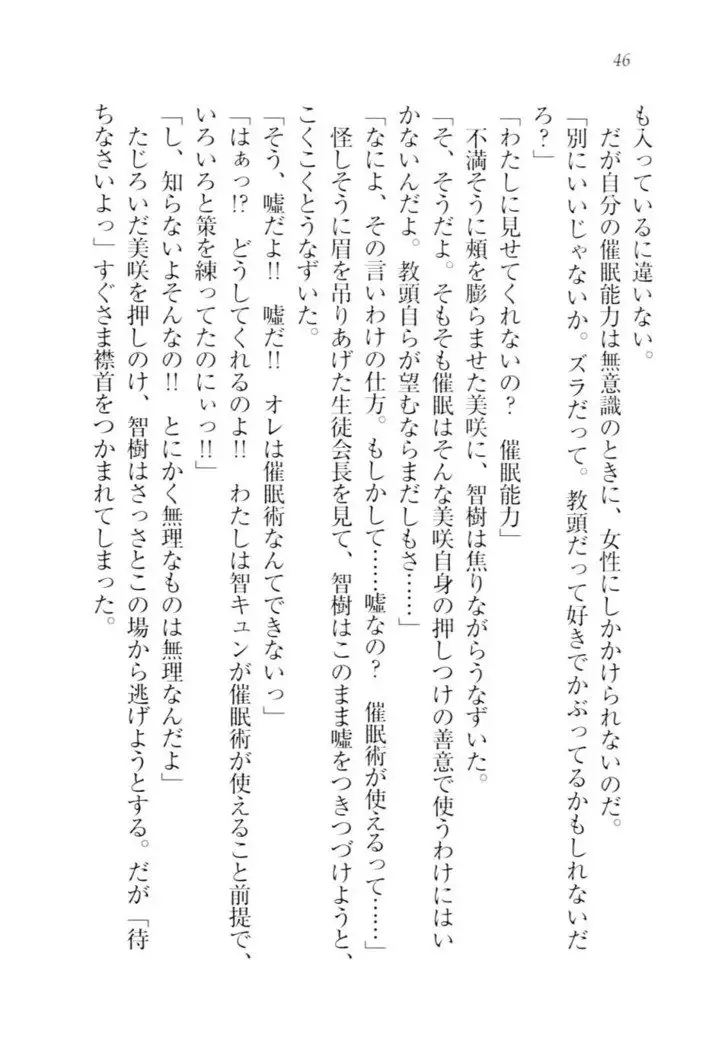 46
も入っているに違いない。
だが自分の催眠能力は無意識のときに、女性にしかかけられないのだ。
「別にいいじゃないか。ズラだって。教頭だって好きでかぶってるかもしれないだ
ろ？」
「わたしに見せてくれないの？　催眠能力」
不満そうに頰を膨らませた美咲に、智樹は焦りながらうなずいた。
「そ、そうだよ。そもそも催眠はそんな美咲自身の押しつけの善意で使うわけにはい
かないんだよ。教頭自らが望むならまだしもさ……」
「なによ、その言いわけの仕方。もしかして……嘘なの？　催眠術が使えるって……」
怪しそうに眉を吊りあげた生徒会長を見て、智樹はこのまま嘘をつきつづけようと、
こくこくとうなずいた。
「そう、嘘だよ!!　嘘だ!!　オレは催眠術なんてできないっ」
「はぁっ!?　どうしてくれるのよ!!　わたしは智キュンが催眠術が使えること前提で、
いろいろと策を練ってたのにぃっ!!」
「し、知らないよそんなの!!　とにかく無理なものは無理なんだよ」
たじろいだ美咲を押しのけ、智樹はさっさとこの場から逃げようとする。だが「待
ちなさいよっ」すぐさま襟首をつかまれてしまった。